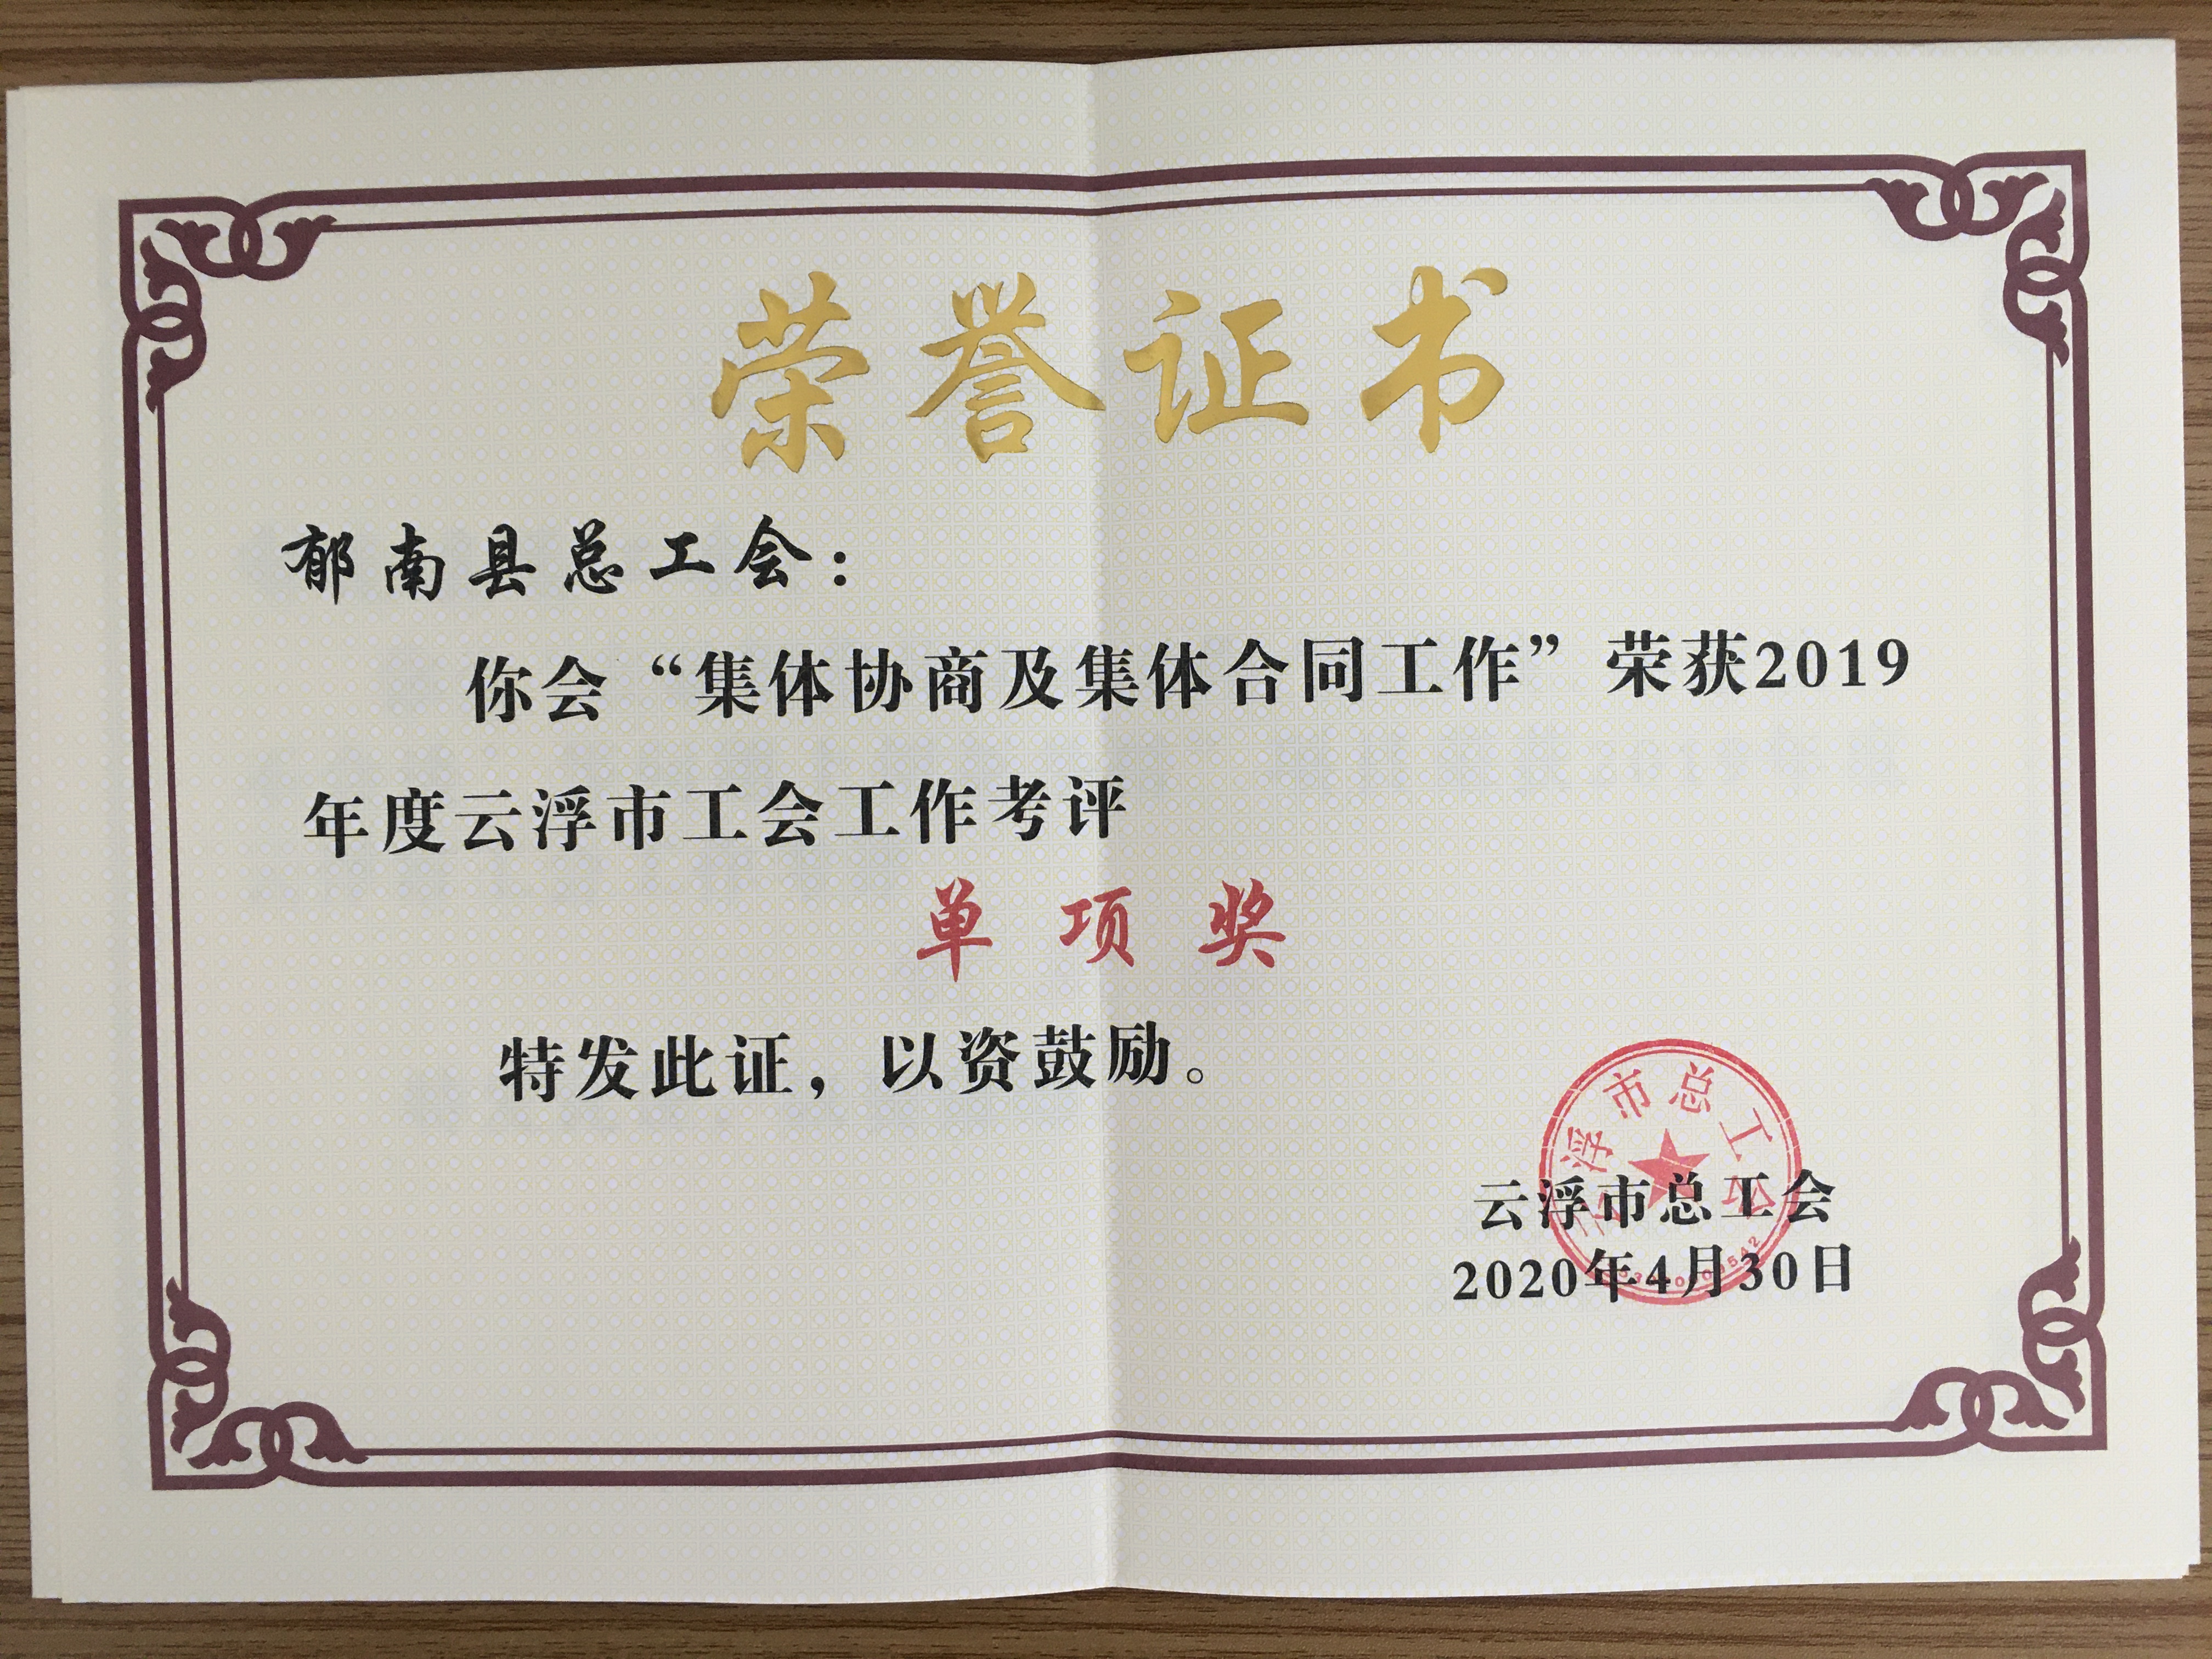 荣誉证书
郁南县总工会：
你会“集体协商及集体合同工作”荣获2019
年度云浮市工会工作考评
单项奖
特发此证，以资鼓励。
云浮市总工会
云浮市总工会
2020年4月30日